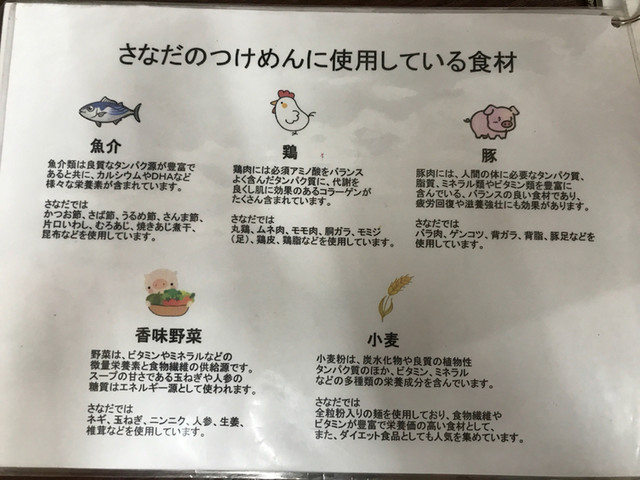 さなだのつけめんに使用している食材
魚介
魚介類は良質なタンパク源が豊富で
あると共に、カルシウムやDHAなど
様々な栄養素が含まれています。
さなだでは
かつお節、さば節、うるめ節、さんま節、
片口いわし、むろあじ、焼きあじ煮干、
昆布などを使用しています。
鶏
鶏肉には必須アミノ酸をバランス
よく含んだタンパク質に、代謝を
良くし肌に効果のあるコラーゲンが
たくさん含まれています。
さなだでは
丸鶏、ムネ肉、モモ肉、胴ガラ、モミジ
(足)、鶏皮、鶏脂などを使用しています。
豚
豚肉には、人間の体に必要なタンパク質、
脂質、ミネラル類やビタミン類を豊富に
含んでいる、バランスの良い食材であり、
疲労回復や滋養強壮にも効果があります。
さなだでは
バラ肉、ゲンコツ、背ガラ、背脂、豚足などを
使用しています。
香味野菜
野菜は、ビタミンやミネラルなどの
微量栄養素と食物繊維の供給源です。
スープの甘さである玉ねぎや人参の
糖質はエネルギー源として使われます。
さなだでは
ネギ、玉ねぎ、ニンニク、人参、生姜、
椎茸などを使用しています。
小麦
小麦粉は、炭水化物や良質の植物性
タンパク質のほか、ビタミン、ミネラル
などの多種類の栄養成分を含んでいます。
さなだでは
全粒粉入りの麺を使用しており、食物繊維や
ビタミンが豊富で栄養価の高い食材として、
また、ダイエット食品としても人気を集めています。